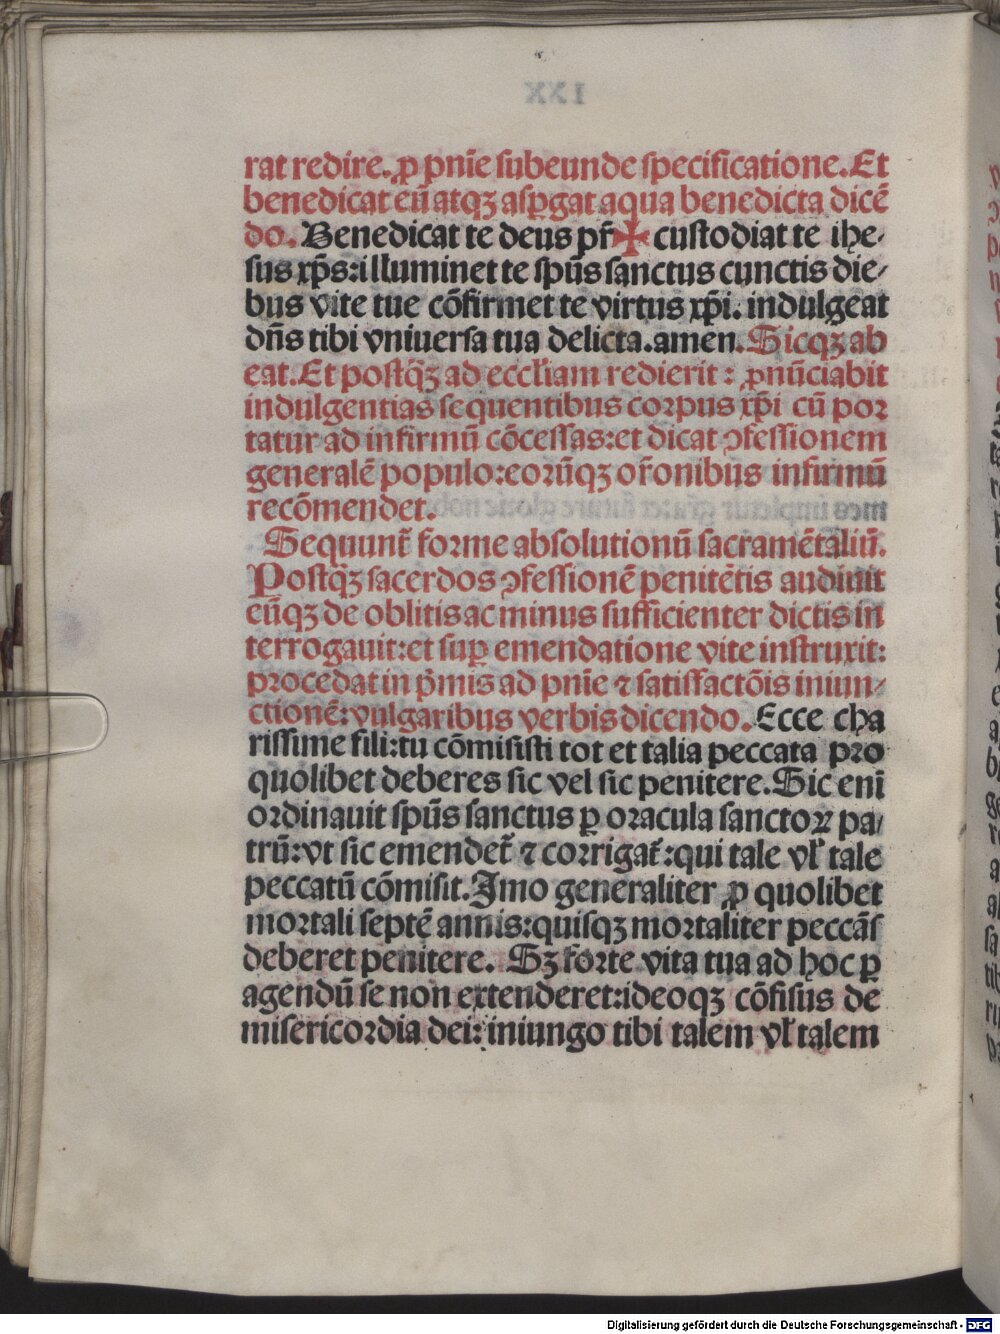 rat redire. ꝓ pnīe subeunde specificatione. Et
benedicat eū atqꝫ asꝑgat aqua benedicta dicē
do. Benedicat te deus pr̄ ✠ custodiat te ihe⸗
sus xp̄s: illuminet te spūs sanctus cunctis die⸗
bus vite tue cōfirmet te virtus xp̄i. indulgeat
dn̄s tibi vniuersa tua delicta. amen. Sicqꝫ ab
eat. Et postq̄ꝫ ad eccl'iam redierit: ꝓnūciabit
indulgentias sequentibus corpus xp̄i cū por
tatur ad infirmū cōcessas: et dicat ꝯfessionem
generalē populo: eorūqꝫ or̄onibus infirmū
recōmendet.
Sequunt᷑ forme absolutionū sacramētaliū.
Postq̄ꝫ sacerdos ꝯfessionē penitētis audiuit
eūqꝫ de oblitis ac minus sufficienter dictis in
terrogauit: et suꝑ emendatione vite instruxit:
procedat in p̄mis ad pnīe ⁊ satisfactōis iniun⸗
ctionē: vulgaribus verbis dicendo. Ecce cha
rissime fili: tu cōmisisti tot et talia peccata pro
quolibet deberes sic vel sic penitere. Sic enī
ordinauit spūs sanctus ꝑ oracula sanctoꝝ pa⸗
trū: vt sic emendet᷑ ⁊ corrigat᷑: qui tale vl' tale
peccatū cōmisit. Imo generaliter ꝓ quolibet
mortali septē annis: quisqꝫ mortaliter peccās
deberet penitere. Sꝫ forte vita tua ad hoc ꝑ
agendū se non extenderet: ideoqꝫ cōfisus de
misericordia dei: iniungo tibi talem vl' talem
Digitalisierung gefördert durch die Deutsche Forschungsgemeinschaft - DFG